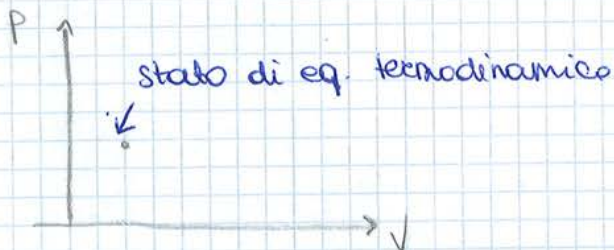 P
stato di eq. termodinamico
V